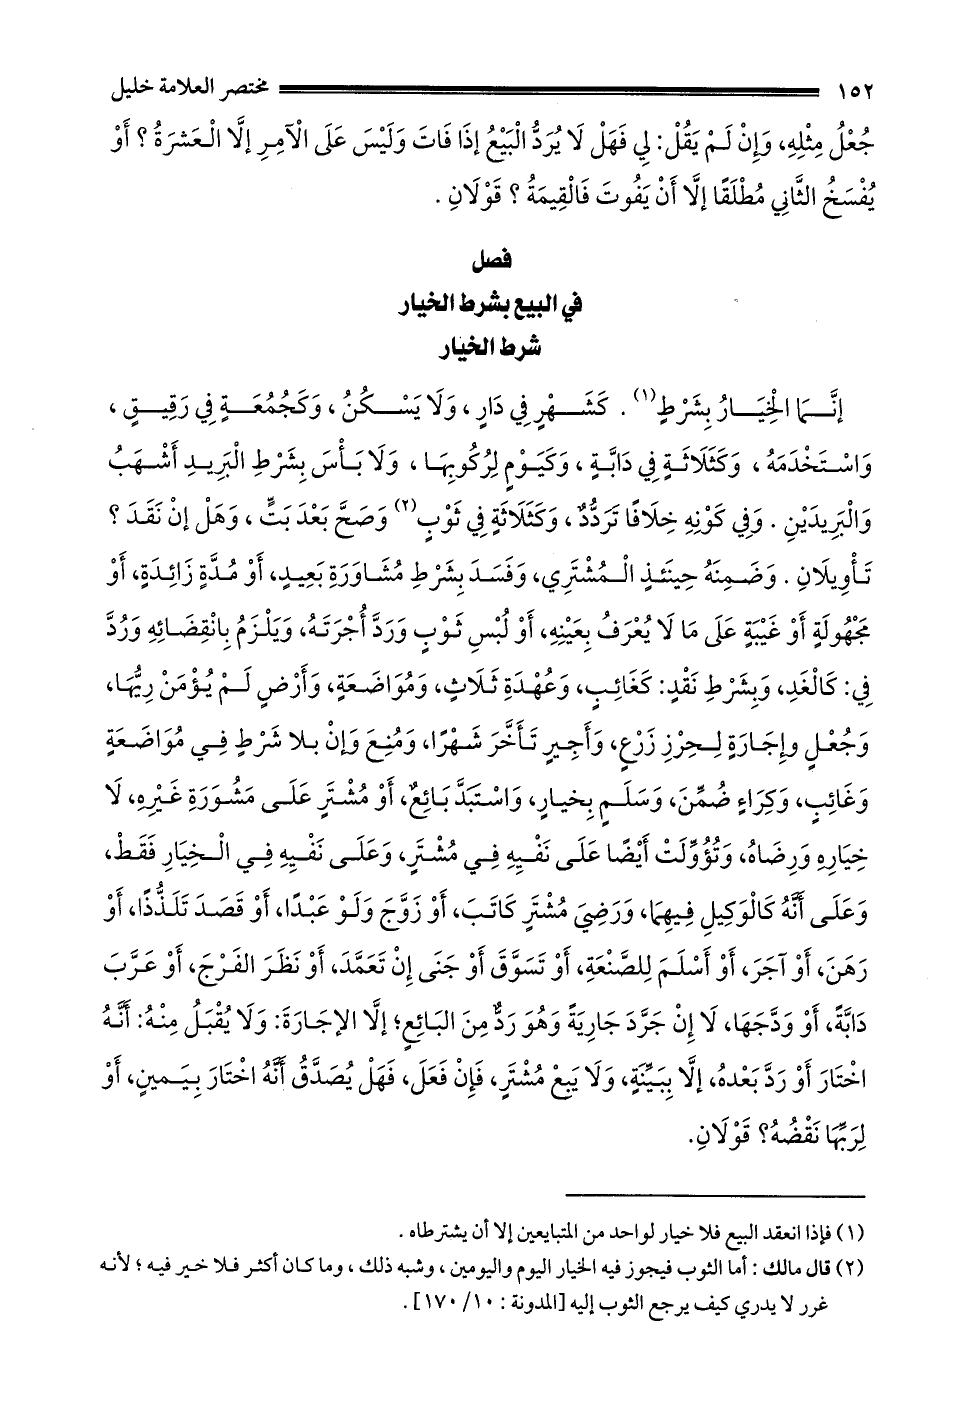 ١٥٢ مختصر العلامة خليل
جُعْلُ مِثْلِهِ، وَإِنْ لَمْ يَقُلْ: لِي فَهَلْ لَا يُرَدُّ الْبَيْعُ إِذَا فَاتَ وَلَيْسَ عَلَى الْآمِرِ إِلَّا الْعَشَرَةُ ؟ أَوْ
يُفْسَخُ الثَّانِي مُطْلَقًا إِلَّا أَنْ يَفُوتَ فَالْقِيمَةُ ؟ قَوْلَانِ .
فصل
في البيع بشرط الخيار
شرط الخيار
إِنَّمَا الْخِيَارُ بِشَرْطٍ(١) . كَشَهْرٍ فِي دَارٍ ، وَلَا يَسْكُنُ ، وَكَجُمُعَةٍ فِي رَقِيقٍ ،
وَاسْتَخْدَمَهُ ، وَكَثَلَاثَةٍ فِي دَابَّةٍ ، وَكَيَوْمٍ لِرُكُوبِهَا ، وَلَا بَأْسَ بِشَرْطِ الْبَرِيدِ أَشْهَبُ
وَالْبَرِيدَيْنِ . وَفِي كَوْنِهِ خِلَافًا تَرَدُّدٌ ، وَكَثَلَاثَةٍ فِي ثَوْبٍ(٢) وَصَحَّ بَعْدَ بَتٍّ ، وَهَلْ إِنْ نَقَدَ ؟
تَأْوِيلَانِ . وَضَمِنَهُ حِينَئِذٍ الْمُشْتَرِي، وَفَسَدَ بِشَرْطِ مُشَاوَرَةِ بَعِيدٍ، أَوْ مُدَّةٍ زَائِدَةٍ، أَوْ
مَجْهُولَةٍ أَوْ غَيْبَةٍ عَلَى مَا لَا يُعْرَفُ بِعَيْنِهِ، أَوْ لُبْسِ ثَوْبٍ وَرَدَّ أُجْرَتَهُ، وَيَلْزَمُ بِانْقِضَائِهِ وَرُدَّ
فِي: كَالْغَدِ، وَبِشَرْطِ نَقْدٍ: كَغَائِبٍ، وَعُهْدَةِ ثَلَاثٍ، وَمُوَاضَعَةٍ، وَأَرْضٍ لَمْ يُؤْمَنْ رِيُّهَا،
وَجُعْلٍ وإِجَارَةٍ لِحِرْزِ زَرْعٍ، وَأَجِيرٍ تَأَخَّرَ شَهْرًا، وَمُنِعَ وَإِنْ بلا شَرْطٍ فِي مُوَاضَعَةٍ
وَغَائِبٍ، وَكِرَاءٍ ضُمِّنَ، وَسَلَمٍ بِخيارٍ، وَاسْتَبَدَّ بَائِعٌ، أَوْ مُشْتَرٍ عَلَى مَشُورَةِ غَيْرِهِ، لَا
خِيَارِهِ وَرِضَاهُ، وَتُؤُوِّلَتْ أَيْضًا عَلَى نَفْيِهِ فِي مُشْتَرٍ، وَعَلَى نَفْيِهِ فِي الْخِيَارِ فَقَطْ،
وَعَلَى أَنَّهُ كَالْوَكِيلِ فِيهِمَا، وَرَضِيَ مُشْتَرٍ كَاتَبَ، أَوْ زَوَّجَ وَلَوْ عَبْدًا، أَوْ قَصَدَ تَلَذُّذًا، أَوْ
رَهَنَ، أَوْ آجَرَ، أَوْ أَسْلَمَ لِلصَّنْعَةِ، أَوْ تَسَوَّقَ أَوْ جَنَى إِنْ تَعَمَّدَ، أَوْ نَظَرَ الفَرْجَ، أَوْ عَرَّبَ
دَابَّةً، أَوْ وَدَّجَهَا، لَا إِنْ جَرَّدَ جَارِيَةً وَهُوَ رَدٌّ مِنَ البَائِعِ؛ إلَّا الإِجَارَةَ: وَلَا يُقْبَلُ مِنْهُ: أَنَّهُ
اخْتَارَ أَوْ رَدَّ بَعْدَهُ، إِلَّا بِبَيِّنَةٍ، وَلَا يَبِعْ مُشْتَرٍ، فَإِنْ فَعَلَ، فَهَلْ يُصَدَّقُ أَنَّهُ اخْتَارَ بِيَمِينٍ، أَوْ
لِرَبِّهَا نَقْضُهُ؟ قَوْلَانِ.
(١) فإذا انعقد البيع فلا خيار لواحد من المتبايعين إلا أن يشترطاه .
(٢) قال مالك : أما الثوب فيجوز فيه الخيار اليوم واليومين ، وشبه ذلك ، وما كان أكثر فلا خير فيه ؛ لأنه
غرر لا يدري كيف يرجع الثوب إليه [المدونة : ١٠/ ١٧٠] .